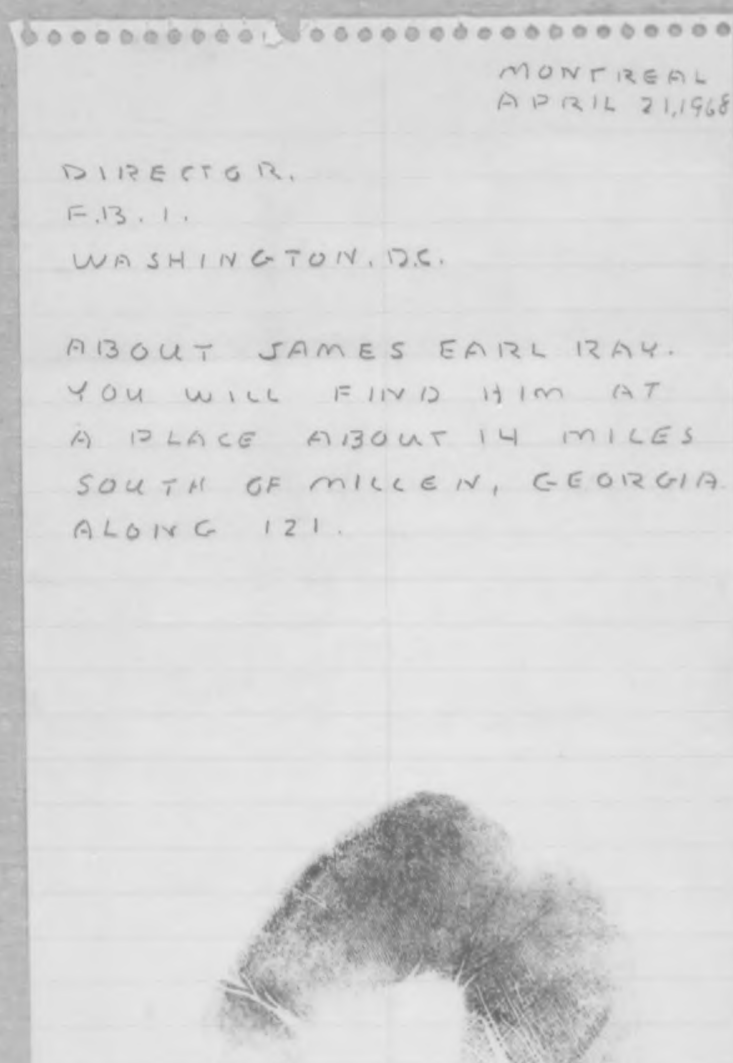 MONTREAL
APRIL 21,1968
DIRECTOR.
F.B.I.
WASHINGTON. D.C.
ABOUT JAMES EARL RAY.
YOU WILL FIND HIM AT
A PLACE ABOUT 14 MILES
SOUTH OF MILLEN, GEORGIA.
ALONG 121.